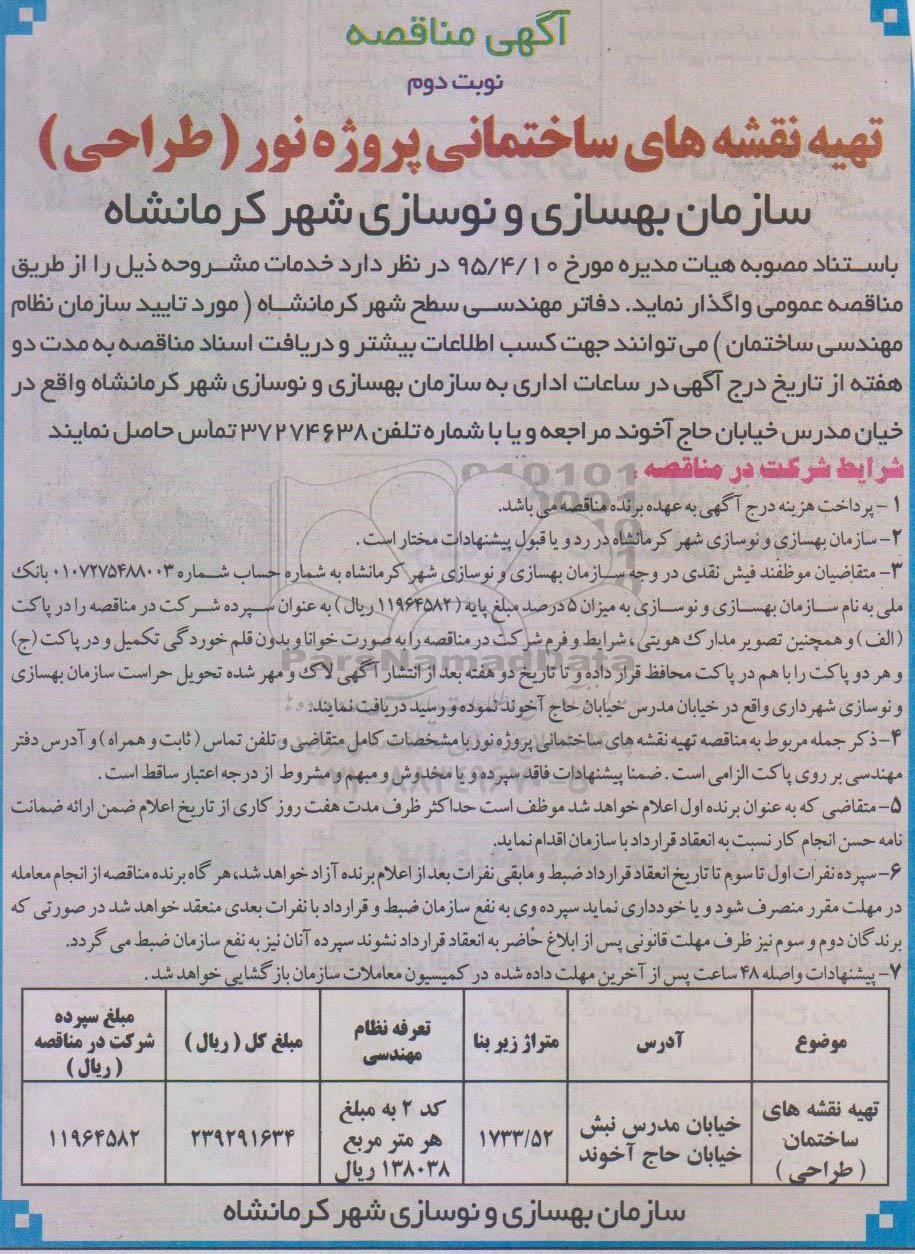 آگهی مناقصه
نوبت دوم
تهیه نقشه های ساختمانی پروژه نور ( طراحی )
سازمان بهسازی و نوسازی شهر کرمانشاه
باستناد مصوبه هیات مدیره مورخ ۹۵/۴/۱۰ در نظر دارد خدمات مشروحه ذیل را از طریق
مناقصه عمومی واگذار نماید. دفاتر مهندسی سطح شهر کرمانشاه ( مورد تایید سازمان نظام
مهندسی ساختمان ) می توانند جهت کسب اطلاعات بیشتر و دریافت اسناد مناقصه به مدت دو
هفته از تاریخ درج آگهی در ساعات اداری به سازمان بهسازی و نوسازی شهر کرمانشاه واقع در
خیان مدرس خیابان حاج آخوند مراجعه و یا با شماره تلفن ۳۷۲۷۴۶۳۸ تماس حاصل نمایند
شرایط شرکت در مناقصه :
۱ - پرداخت هزینه درج آگهی به عهده برنده مناقصه می باشد.
۲- سازمان بهسازی و نوسازی شهر کرمانشاه در رد و یا قبول پیشنهادات مختار است .
۳- متقاضیان موظفند فیش نقدی در وجه سازمان بهسازی و نوسازی شهر کرمانشاه به شماره حساب شماره ۰۱۰۷۲۷۵۴۸۸۰۰۳ بانک
ملی به نام سازمان بهسازی و نوسازی به میزان ۵ درصد مبلغ پایه ( ۱۱۹۶۴۵۸۲ ریال ) به عنوان سپرده شرکت در مناقصه را در پاکت
( الف ) و همچنین تصویر مدارک هویتی ، شرایط و فرم شرکت در مناقصه را به صورت خوانا و بدون قلم خوردگی تکمیل و در پاکت (ج)
و هر دو پاکت را با هم در پاکت محافظ قرار داده و تا تاریخ دو هفته بعد از انتشار آگهی لاک و مهر شده تحویل حراست سازمان بهسازی
و نوسازی شهرداری واقع در خیابان مدرس خیابان حاج آخوند نموده و رسید دریافت نمایند.
۴- ذکر جمله مربوط به مناقصه تهیه نقشه های ساختمانی پروژه نور با مشخصات کامل متقاضی و تلفن تماس ( ثابت و همراه ) و آدرس دفتر
مهندسی بر روی پاکت الزامی است . ضمنا پیشنهادات فاقد سپرده و یا مخدوش و مبهم و مشروط از درجه اعتبار ساقط است .
۵- متقاضی که به عنوان برنده اول اعلام خواهد شد موظف است حداکثر ظرف مدت هفت روز کاری از تاریخ اعلام ضمن ارائه ضمانت
نامه حسن انجام کار نسبت به انعقاد قرارداد با سازمان اقدام نماید.
۶- سپرده نفرات اول تا سوم تا تاریخ انعقاد قرارداد ضبط و مابقی نفرات بعد از اعلام برنده آزاد خواهد شد، هر گاه برنده مناقصه از انجام معامله
در مهلت مقرر منصرف شود و یا خودداری نماید سپرده وی به نفع سازمان ضبط و قرارداد با نفرات بعدی منعقد خواهد شد در صورتی که
برندگان دوم و سوم نیز ظرف مهلت قانونی پس از ابلاغ حاضر به انعقاد قرارداد نشوند سپرده آنان نیز به نفع سازمان ضبط می گردد.
۷- پیشنهادات واصله ۴۸ ساعت پس از آخرین مهلت داده شده در کمیسیون معاملات سازمان بازگشایی خواهد شد .
موضوع آدرس متراژ زیر بنا تعرفه نظام مهندسی مبلغ کل ( ریال ) مبلغ سپرده شرکت در مناقصه ( ریال )
تهیه نقشه های ساختمان ( طراحی ) خیابان مدرس نبش خیابان حاج آخوند ۱۷۳۳/۵۲ کد ۲ به مبلغ هر متر مربع ۱۳۸۰۳۸ ریال ۲۳۹۲۹۱۶۳۴ ۱۱۹۶۴۵۸۲
سازمان بهسازی و نوسازی شهر کرمانشاه
ParsNamadData